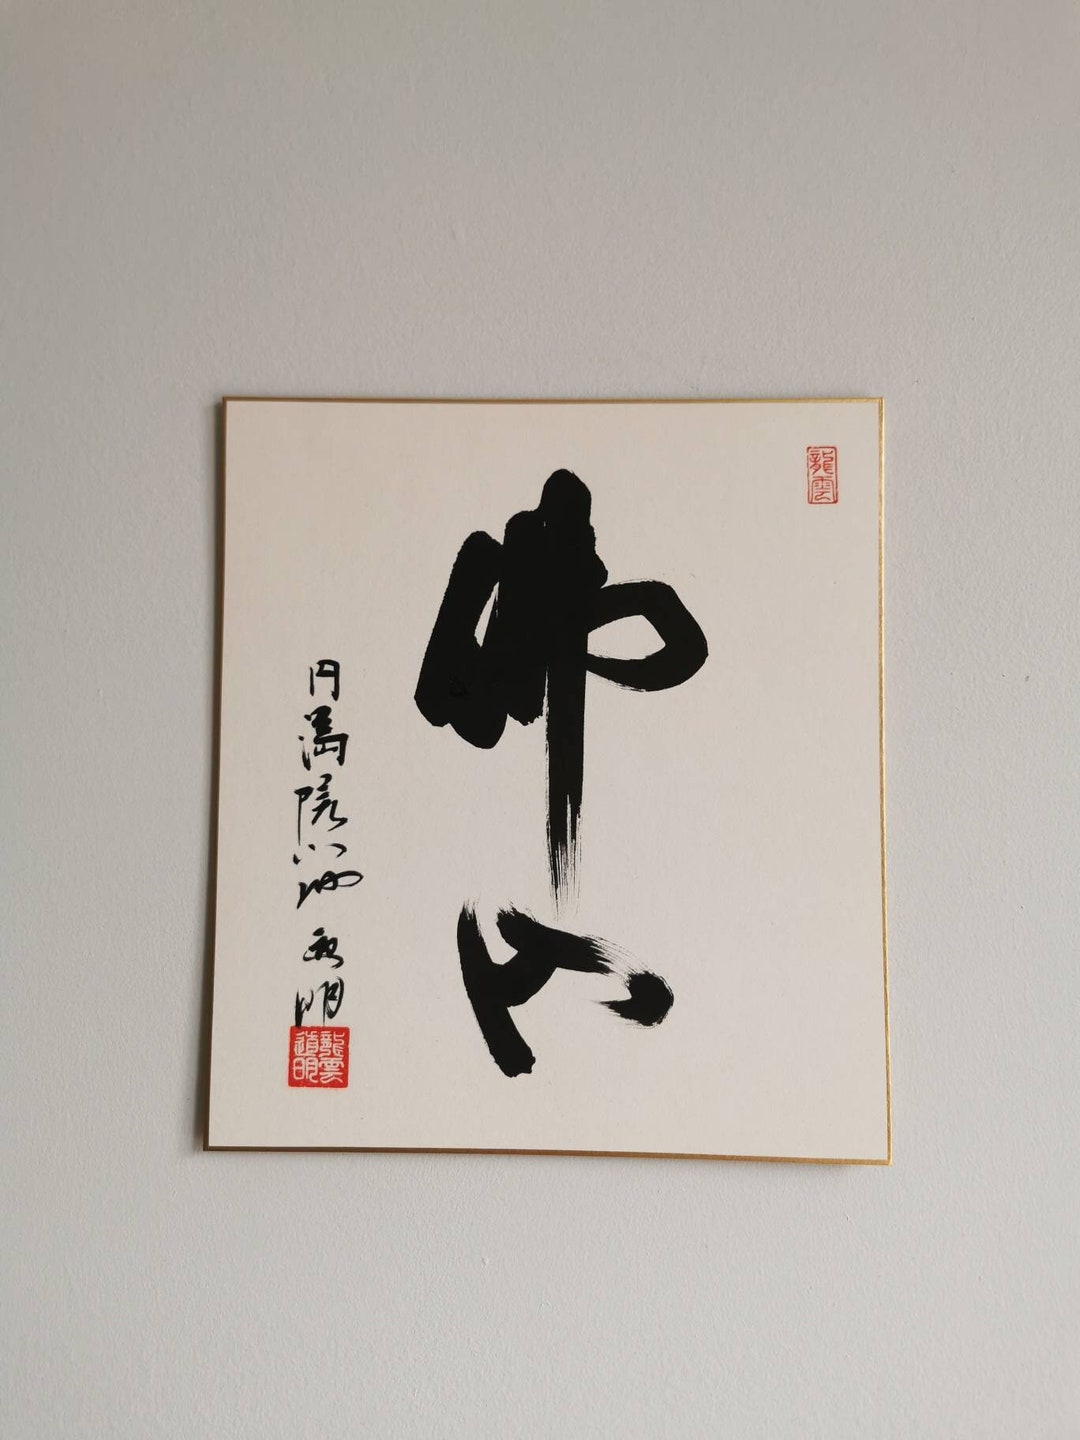 龍雲
佛心
円満院門跡 道明
龍雲
道明